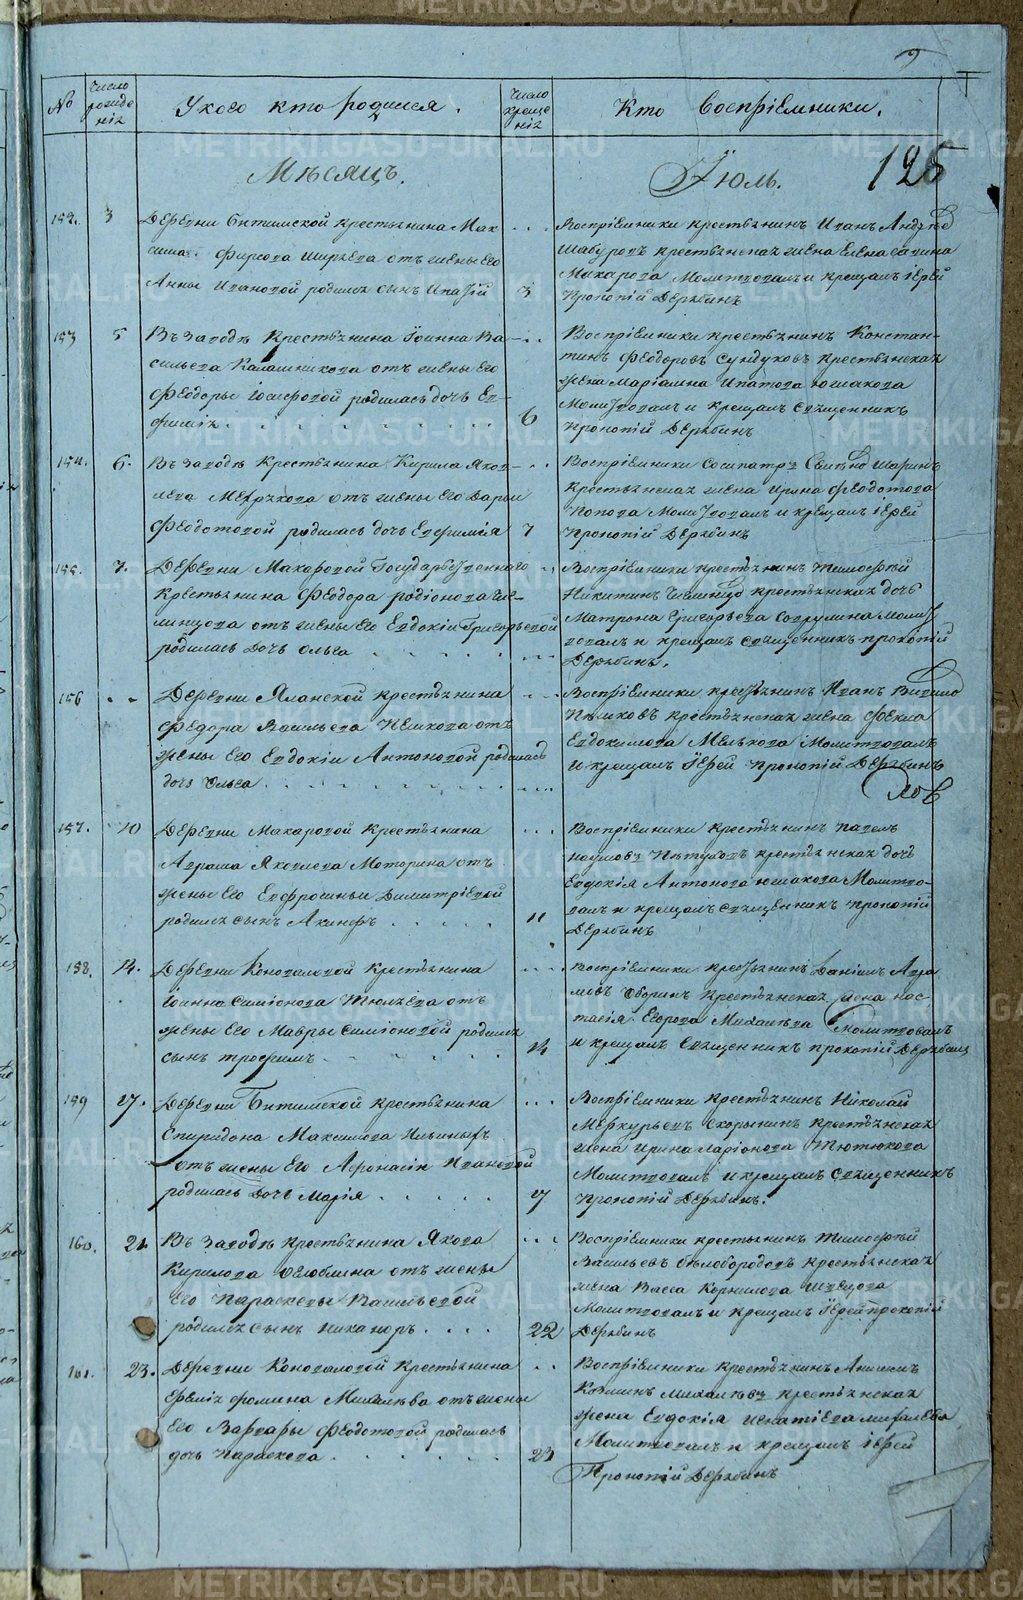 METRIKI.GASO-URAL.RU
№
Число рожденія
У кого кто родился.
Число крещенія
Кто Воспріемники.
125
Мѣсяцъ. Іюль.
152. 3
Деревни крестьянина Мак-
сима Фирсова отъ жены его
Анны Ивановой родился сынъ
3
Воспріемники крестьянинъ Иванъ
крестьянская жена Елена
Макарова Молитвовалъ и крещалъ іерей
Прокопій Дерябинъ
153 5
Въ заводѣ Крестьянина Іоанна Ва-
сильева Калашникова отъ жены его
Феодоры Іосифовой родилась дочь Ев-
фимія
6
Воспріемники крестьянинъ Констан-
тинъ Феодоровъ Сундуковъ крестьянская
жена Маріамна Ипатова Юшакова
Молитвовалъ и крещалъ священникъ
Прокопій Дерябинъ
154. 6.
Въ заводѣ Крестьянина Кирила Яков-
лева отъ жены его Дарьи
Феодотовой родилась дочь Евфимія
7
Воспріемники Сосипатръ
крестьянская жена Ирина Феодотова
Попова Молитвовалъ и крещалъ іерей
Прокопій Дерябинъ
155. 7.
Деревни Макаровой Государственнаго
Крестьянина Феодора Родіонова
отъ жены его Евдокіи Григорьевой
родилась дочь Ольга
Воспріемники крестьянинъ Тимофей
Никитинъ крестьянская дочь
Матрона Григорьева молит-
вовалъ и крещалъ священникъ Прокопій
Дерябинъ.
156
Деревни Яланской крестьянина
Федора Васильева Пешкова отъ
жены его Евдокіи Антоновой родилась
дочь Ольга
Воспріемники крестьянинъ Иванъ
Пѣшковъ крестьянская жена Фекла
Евдокимова Мелькова Молитвовалъ
и крещалъ Іерей Прокопій Дерябинъ
157. 10
Деревни Макаровой Крестьянина
Аврама Яковлева Моторина отъ
жены его Евфросиньи Димитріевой
родился сынъ Акинфъ
11
Воспріемники крестьянинъ Павелъ
Наумовъ Пѣтуховъ крестьянская дочь
Евдокія Антонова Юшакова Молитво-
валъ и крещалъ священникъ Прокопій
Дерябинъ
158. 14.
Деревни Коноваловой Крестьянина
Іоанна Симіонова Тюлѣева отъ
жены его Мавры Симіоновой родился
сынъ Трофимъ
14
Воспріемники крестьянинъ Даніилъ Авра-
мовъ Оборинъ крестьянская жена Нас-
тасія Егорова Михалева Молитвовалъ
и крещалъ священникъ Прокопій Дерябинъ
159 17.
Деревни Битимской крестьянина
Спиридона Максимова Ильиныхъ
отъ жены его Афонасіи Ивановой
родилась дочь Марія
17
Воспріемники крестьянинъ Николай
Меркурьевъ Скорынинъ крестьянская
жена Ирина Ларіонова Тютюкова
Молитвовалъ и крещалъ священникъ
Прокопій Дерябинъ.
160. 21
Въ заводѣ крестьянина Якова
Кирилова отъ жены
его Параскевы Васильевой
родился сынъ Никаноръ
22
Воспріемники крестьянинъ Тимофей
Васильевъ Бѣлобородовъ крестьянская
жена Васса Корнилова Швецова
Молитвовалъ и крещалъ Іерей Прокопій
Дерябинъ
161. 23.
Деревни Коноваловой Крестьянина
Ереміи Фомина Михалѣва отъ жены
его Варвары Феодотовой родилась
дочь Параскева
23
Воспріемники крестьянинъ
Козминъ Михалѣвъ крестьянская
жена Евдокія Игнатіева Михалева
Молитвовалъ и крещалъ іерей
Прокопій Дерябинъ